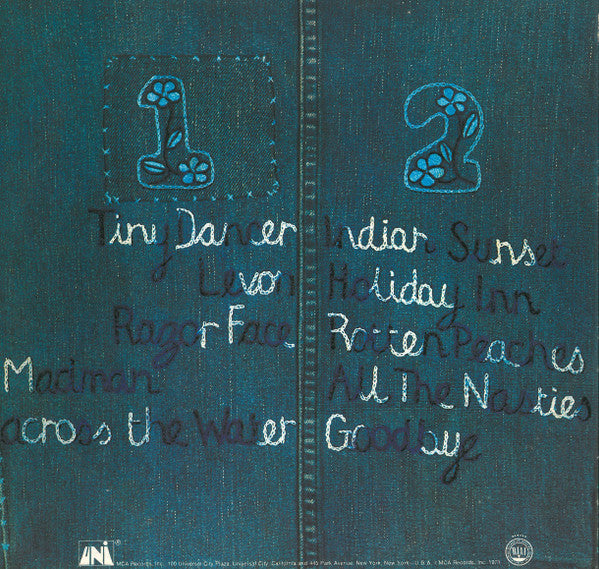 1
Tiny Dancer
Levon
Razor Face
Madman
across the Water
2
Indian Sunset
Holiday Inn
Rotten Peaches
All The Nasties
Goodbye
UNI ®
MCA Records, Inc., 100 Universal City Plaza, Universal City, California and 445 Park Avenue, New York, New York—U.S.A.
MCA Records, Inc. 1971